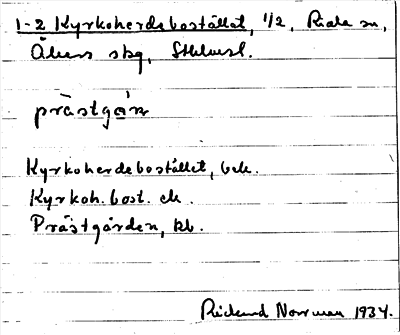 1-2 Kyrkoherdebostället, 1/2, Riala sn,
Åkers skg, Sthlmsl.
prästgån
Kyrkoherdebostället, bek.
Kyrkoh. bost. ek.
Prästgården, kb.
Rickard Norrman 1934.